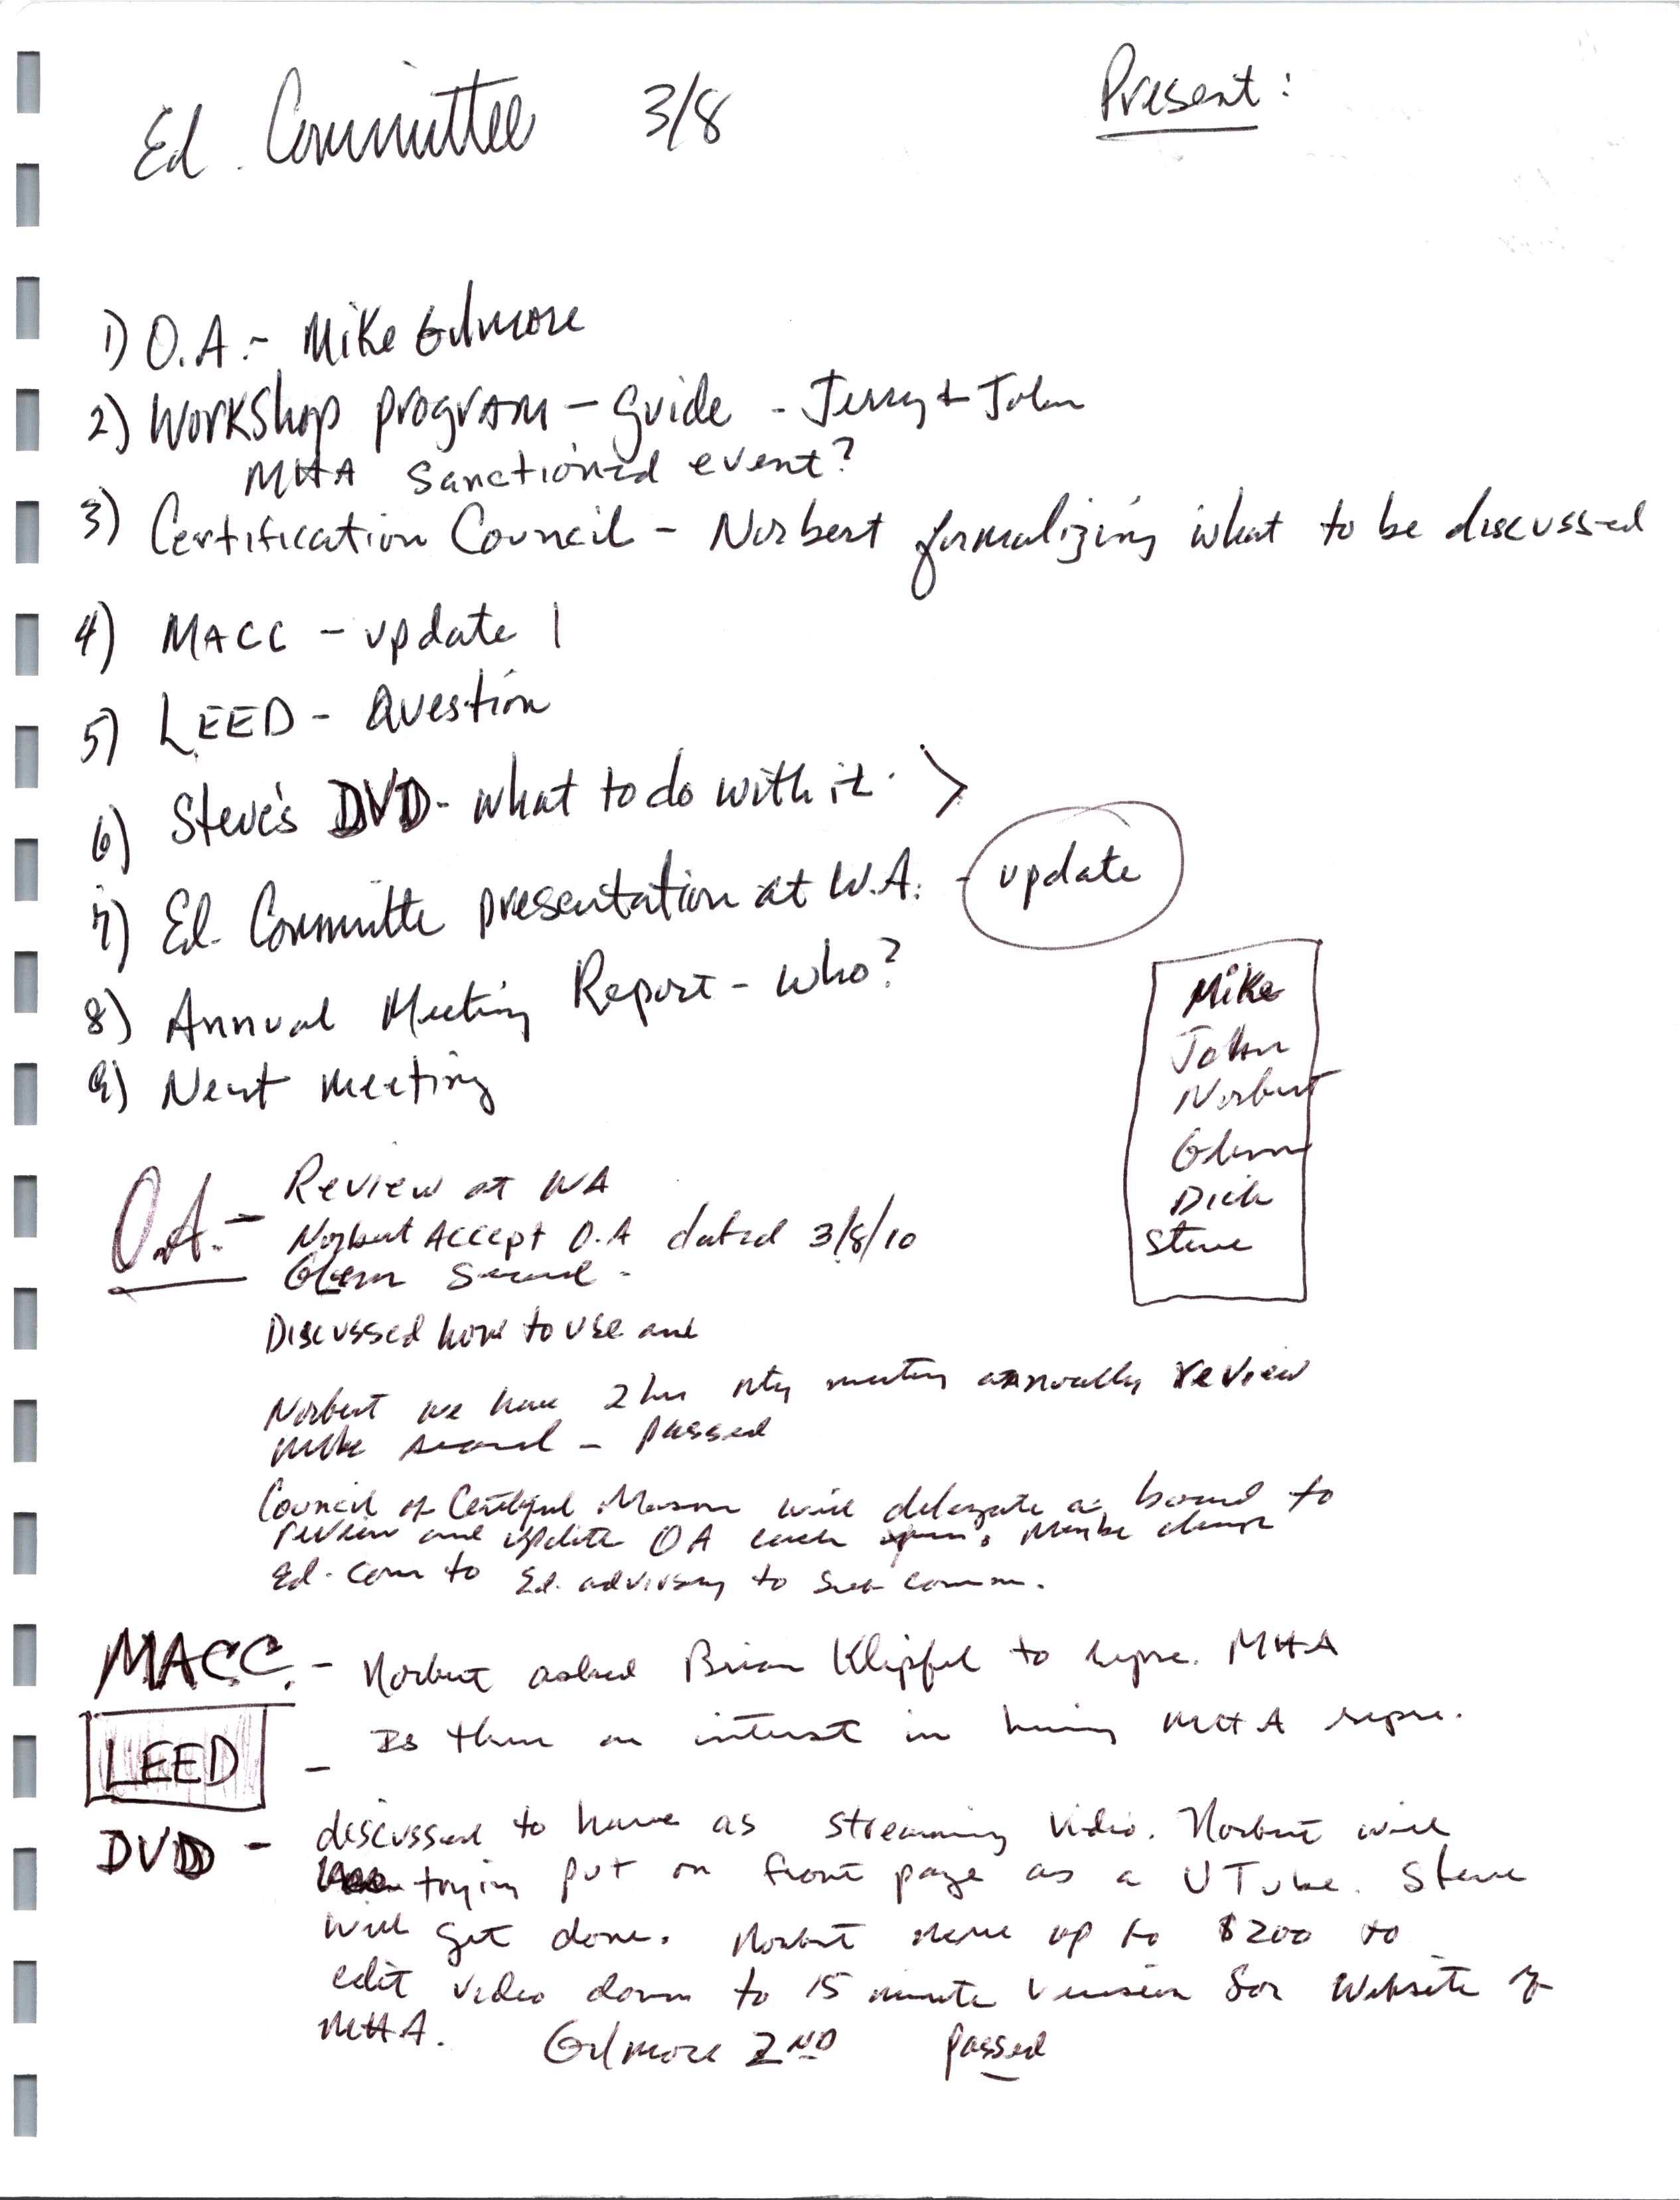 Ed. Committee 3/8
Present:
1) O.A.- Mike Gilmore
2) Workshop program - guide - Jerry + John
MHA Sanctioned event?
3) Certification Council - Norbert formalizing what to be discussed
4) MACC - update
5) LEED - Question
6) Steve's DVD - what to do with it. >
7) Ed. Committe presentation at W.A. - update
8) Annual Meeting Report - who?
9) Next meeting
Mike
John
Norbert
Glenn
Dick
Steve
O.A. - Review at WA
Norbert Accept O.A dated 3/8/10
Glenn Second -
Discussed how to use and
Norbert we have 2 hr mtg meeting annually review
Mike second - passed
Council of Certified Mason will delegate a board to
review and update OA each year. Maybe change
Ed. com to Ed. advisory to sub comm.
MACC. - Norbert asked Brian Klipfel to repre. MHA
LEED - Is there an interest in having MHA repre.
DVD - discussed to have as streaming video. Norbert will
trying put on front page as a UTube. Steve
will get done. Norbert move up to $200 to
edit video down to 15 minute version for Website of
MHA. Gilmore 2ND passed